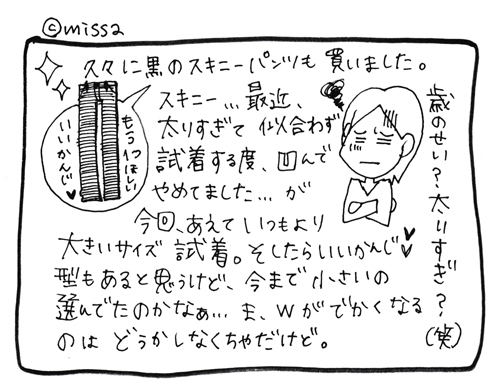 ©missa
久々に黒のスキニーパンツも買いました。
スキニー…最近、
太りすぎて似合わず
試着する度、凹んで
やめてました…が
今回、あえていつもより
大きいサイズ試着。そしたらいいかんじ♥♥
型もあると思うけど、今まで小さいの
選んでたのかなぁ…ま、Wがでかくなる
のはどうかしなくちゃだけど。
もう1つほしい
いいかんじ♥
歳のせい?太りすぎ?
(笑)